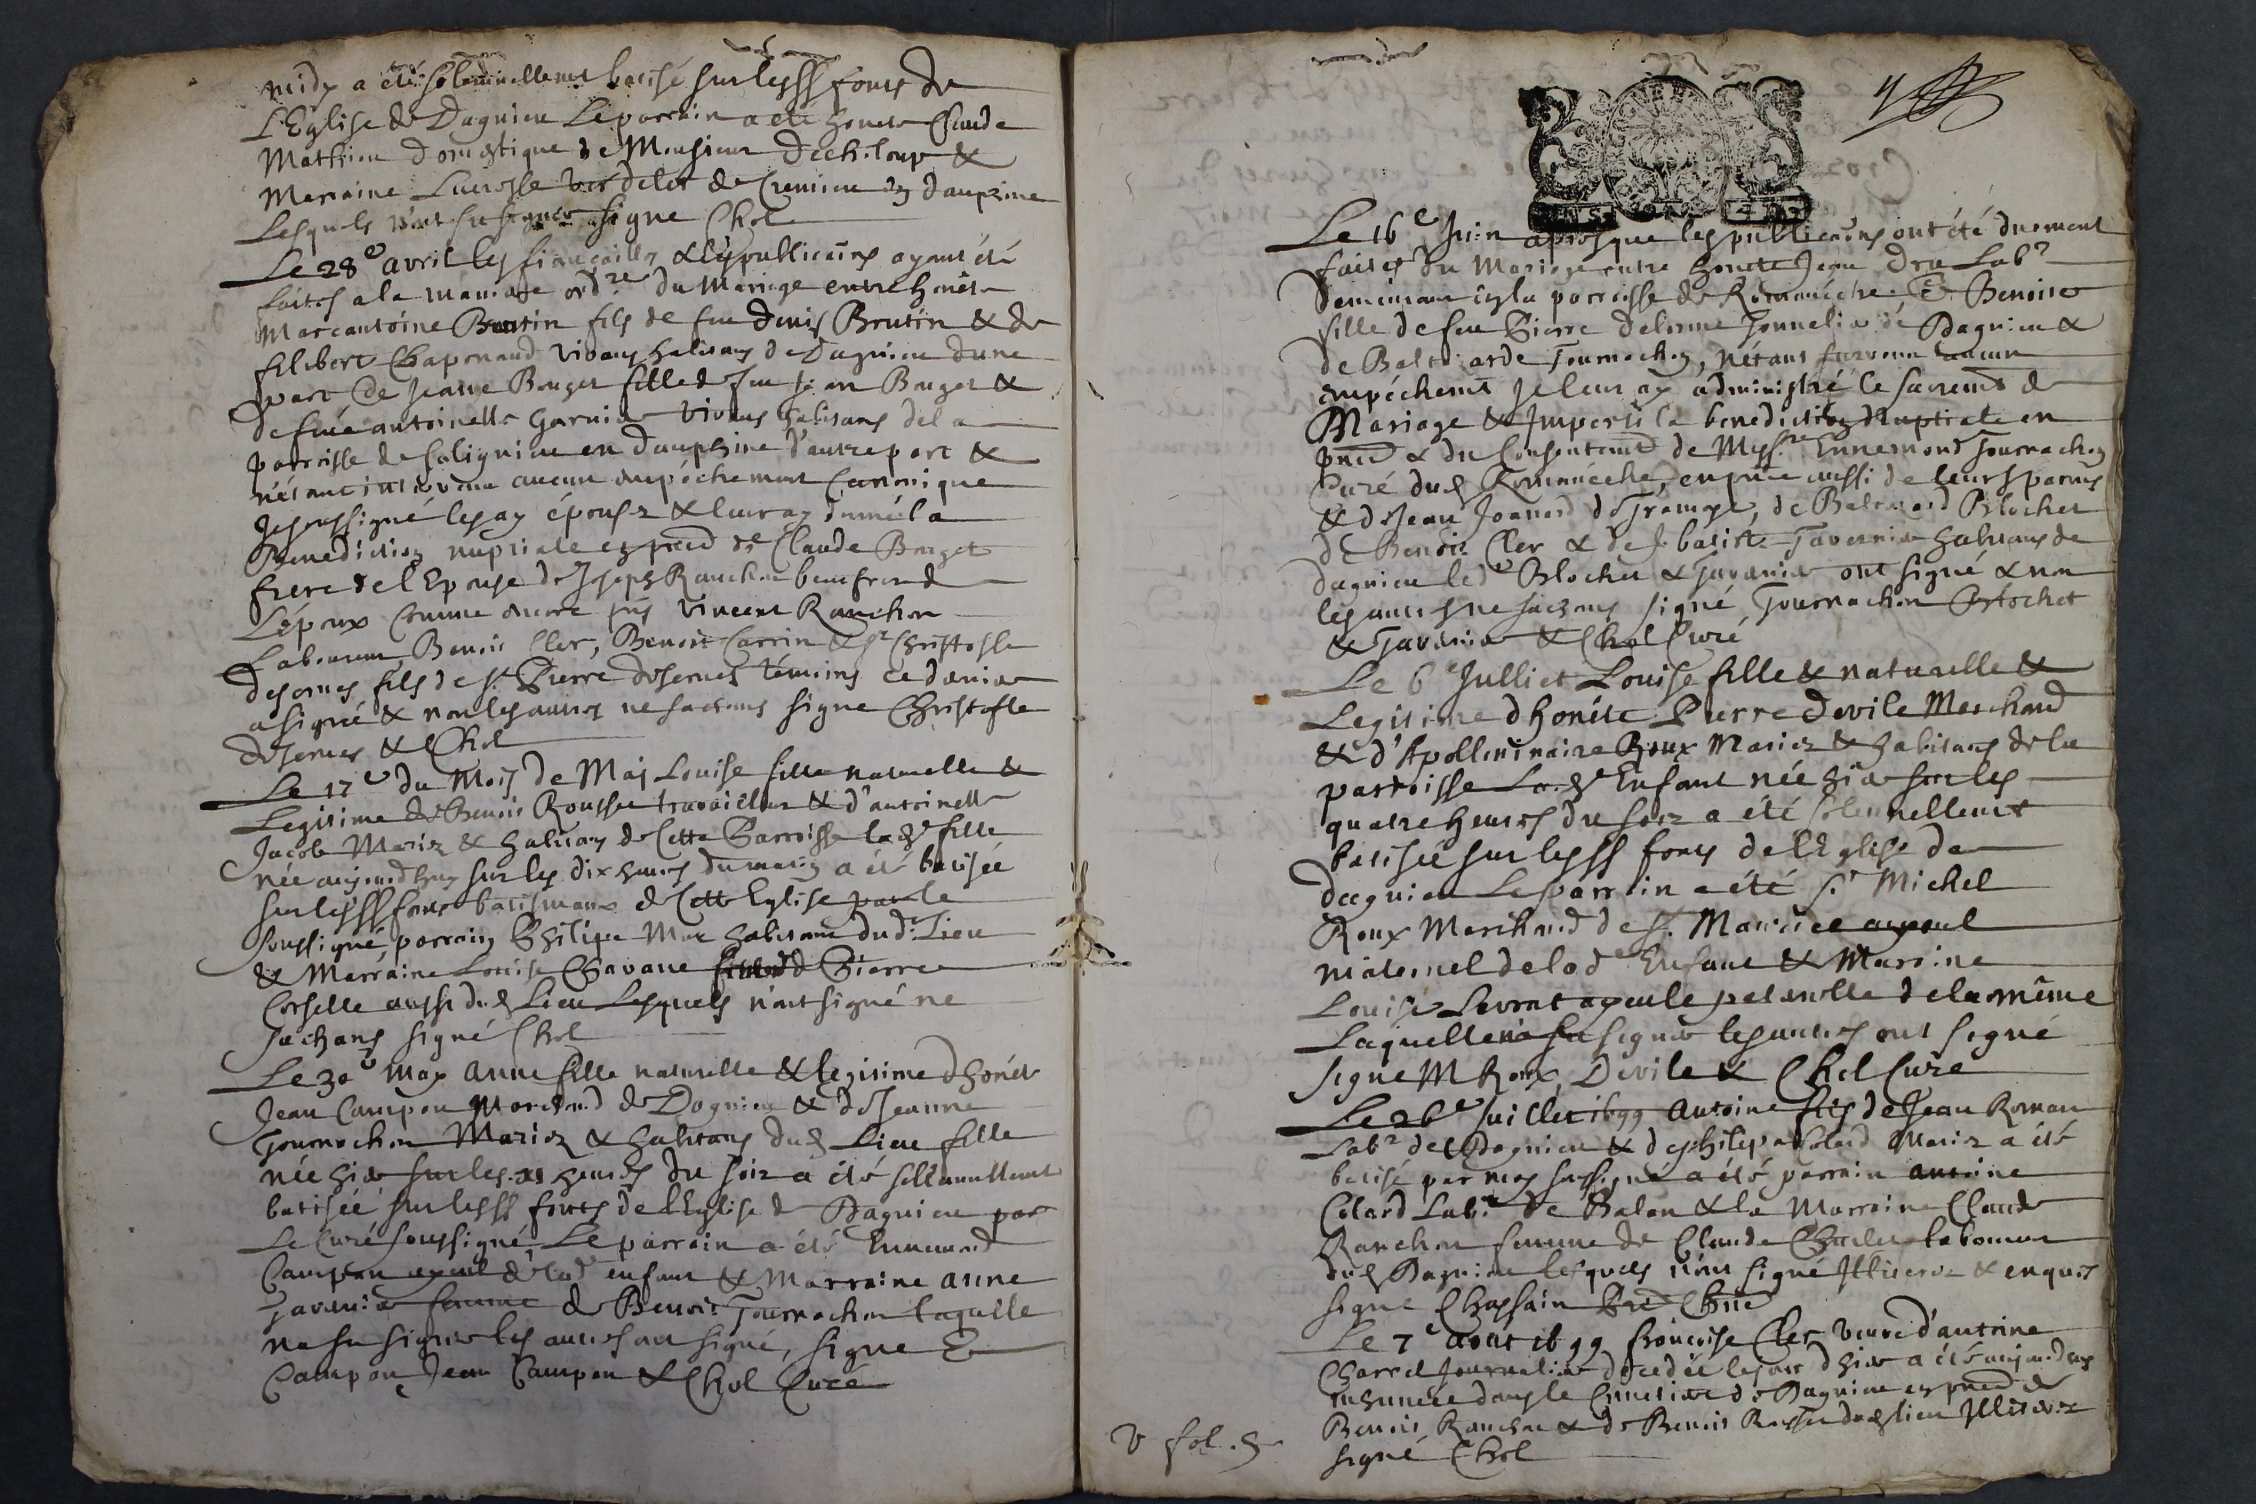 midy a été solemnellement batisé sur less fonts de
L'Eglise de Dagnieu Le parrain a été honete Claude
Mathieu domestique de Monsieur Dechiloup &
Marraine Lucresse Verdelet de Cremieu en daupine
Lesquels n'ont su signer signe Chol
Le 28e avril les fiançailles & les publicaõns ayant été
faites a la maniere ordre du Mariage entre honéte
Marcantoine Brutin fils de feu denis Brutin & de
filiberte Chaponaud vivans habitans de Dagnieu dune
part & Jeane Bouget fille de feu Jean Bouget &
de feüe antoinette Garnier vivans habitans de la
parroisse de Colignieu en dauphine d'autre part &
n'étant intervenu aucun empéchement Canonique
Je soussigné les ay épousez & leur ay donné la
Benediction nuptiale en prêce de Claude Bouget
frere de l'Epouse de Joseph Ranchon beaufrere de
L'époux comme encore pñs Vincent Ranchon
Laboureur Benoit Cler, Benoit Carrin & sr Christofle
desornes fils de sr. Pierre desernes témoins ce dernier
a signé & non les autres ne sachans signe Christofle
desernes & Chol
Le 17e du Mois de Maj Louise fille naturelle &
Legitime de Benoit Rousset travailleur & d'antoinette
Jacob Mariez & habitans de Cette Parroisse lad.e fille
née aujourdhuy sur les dix heures du matin a été batisée
sur less fonts batismaux de Cette Eglise par le
soussigné parrain Philipe Mar habitant dud. Lieu
& Marraine Louise Chavane de Pierre
Corselle aussi dud. Lieu Lesquels n'ont signé ne
sachans signé Chol
Le 30e may Anne fille naturelle & legitime d'honéte
Jean Campon Marchand de Dagnieu & de Jeanne
Tournachon Mariez & habitans dud. Lieu fille
née hier sur les heures du soir a été sollemnellement
batisée sur less fonts de l'Eglise de Dagnieu par
Le Curé soussigné, Le parrain a été Ennemond
Campon ayeul de lade enfant & Marraine anne
Tavernier femme de Benoit Tournachon laquelle
na su signer les autres ont signé, signe E
Campon Jean Campon & Chol Curé
4
Le 16e Juin apres que les publicaõns ont été duement
faites du Mariage entre honete Jean Dru Labr
Demeurant en la parroisse de Romanéche & Benoite
fille de feu Pierre delorme Tonnelier de Dagnieu &
de Baltazarde Tournachon, n'étant survenu aucun
empéchemt Je leur ay administré le sacremt de
Mariage & Imparti la benediction Nuptiale en
prñce & du Consentemt de Messre. Ennemond Tournachon
Curé dud. Romanéche, en prñce aussi de leurs parens
& de Jean Joanard de Tramoye, de Baltazard Blochet
de Benoit Cler & de J. batiste Tavernier habitans de
dagnieu lesd. Blochet & Tavernier ont signé & non
les autres ne sachans signé Tournachon Blochet
& Tavernier & Chol Curé
Le 6e Julliet Louise fille & naturelle &
Legitime d'honéte Pierre Devile Marchand
& d'Apollininaire Roux Mariez & habitans de la
parroisse Lad.e Enfant née hier sur les
quatre heures du soir a été solennellemt
batisée sur less fonts de l'Eglise de
dagnieu Le parrain a été sr. Michel
Roux Marchand de St. Maurice ayeul
maternel de lade Enfant & Marraine
Louise Levrat ayeule paternelle de la même
Laquelle n'a su signer les autres ont signé
signe M Roux, Devile & Chol Curé
Le 26e Juillet 1699 Antoine fils de Jean Roman
Labr de Dagnieu & de philipa Colard Mariez a été
batisé par moy sussigné a été parrain antoine
Colard Labr. de Balan & la Marraine Claude
Ranchon femme de Claude laboureur
dud. Dagnieu lesquels n'ont signé Illiterez & enquis
signe Chassain
Le 7e aout 1699 françoise Cler veuve d'antoine
Charrel Journalier decedée le jour d'hier a été aujourdhuy
inhumée dans le Cimetiere de Dagnieu en prñce de
Benoit Ranchon & de Benoit Rosset dud. lieu Illiterez
signé Chol
V fol. 5